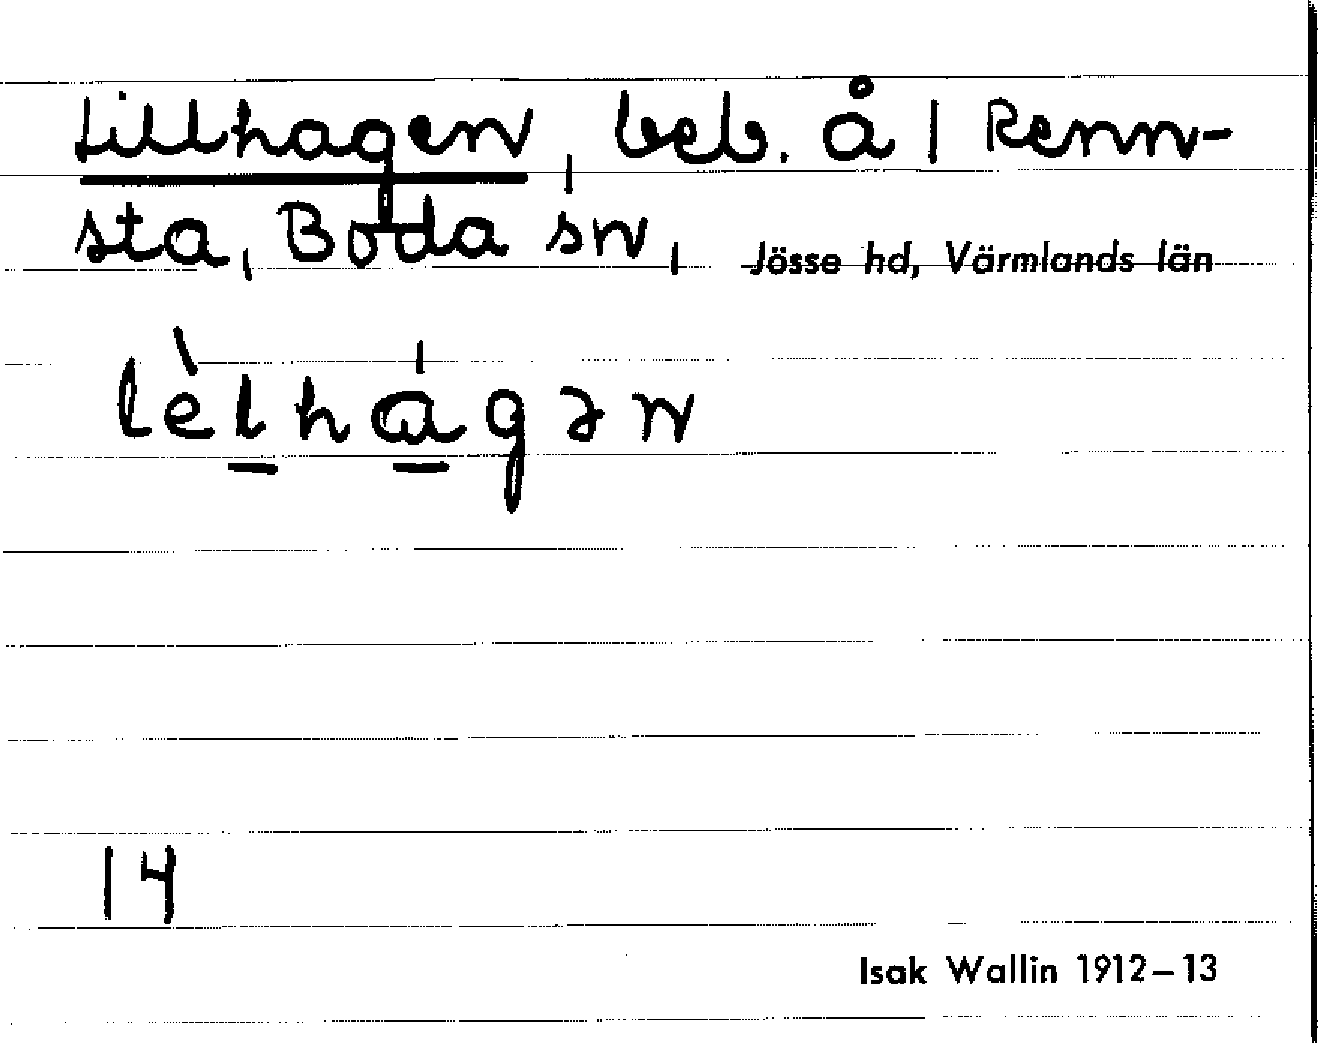 Lillhagen, beb. å 1 Renn-
sta, Boda sn, Jösse hd, Värmlands län
lèlhágən
14
Isak Wallin 1912–13